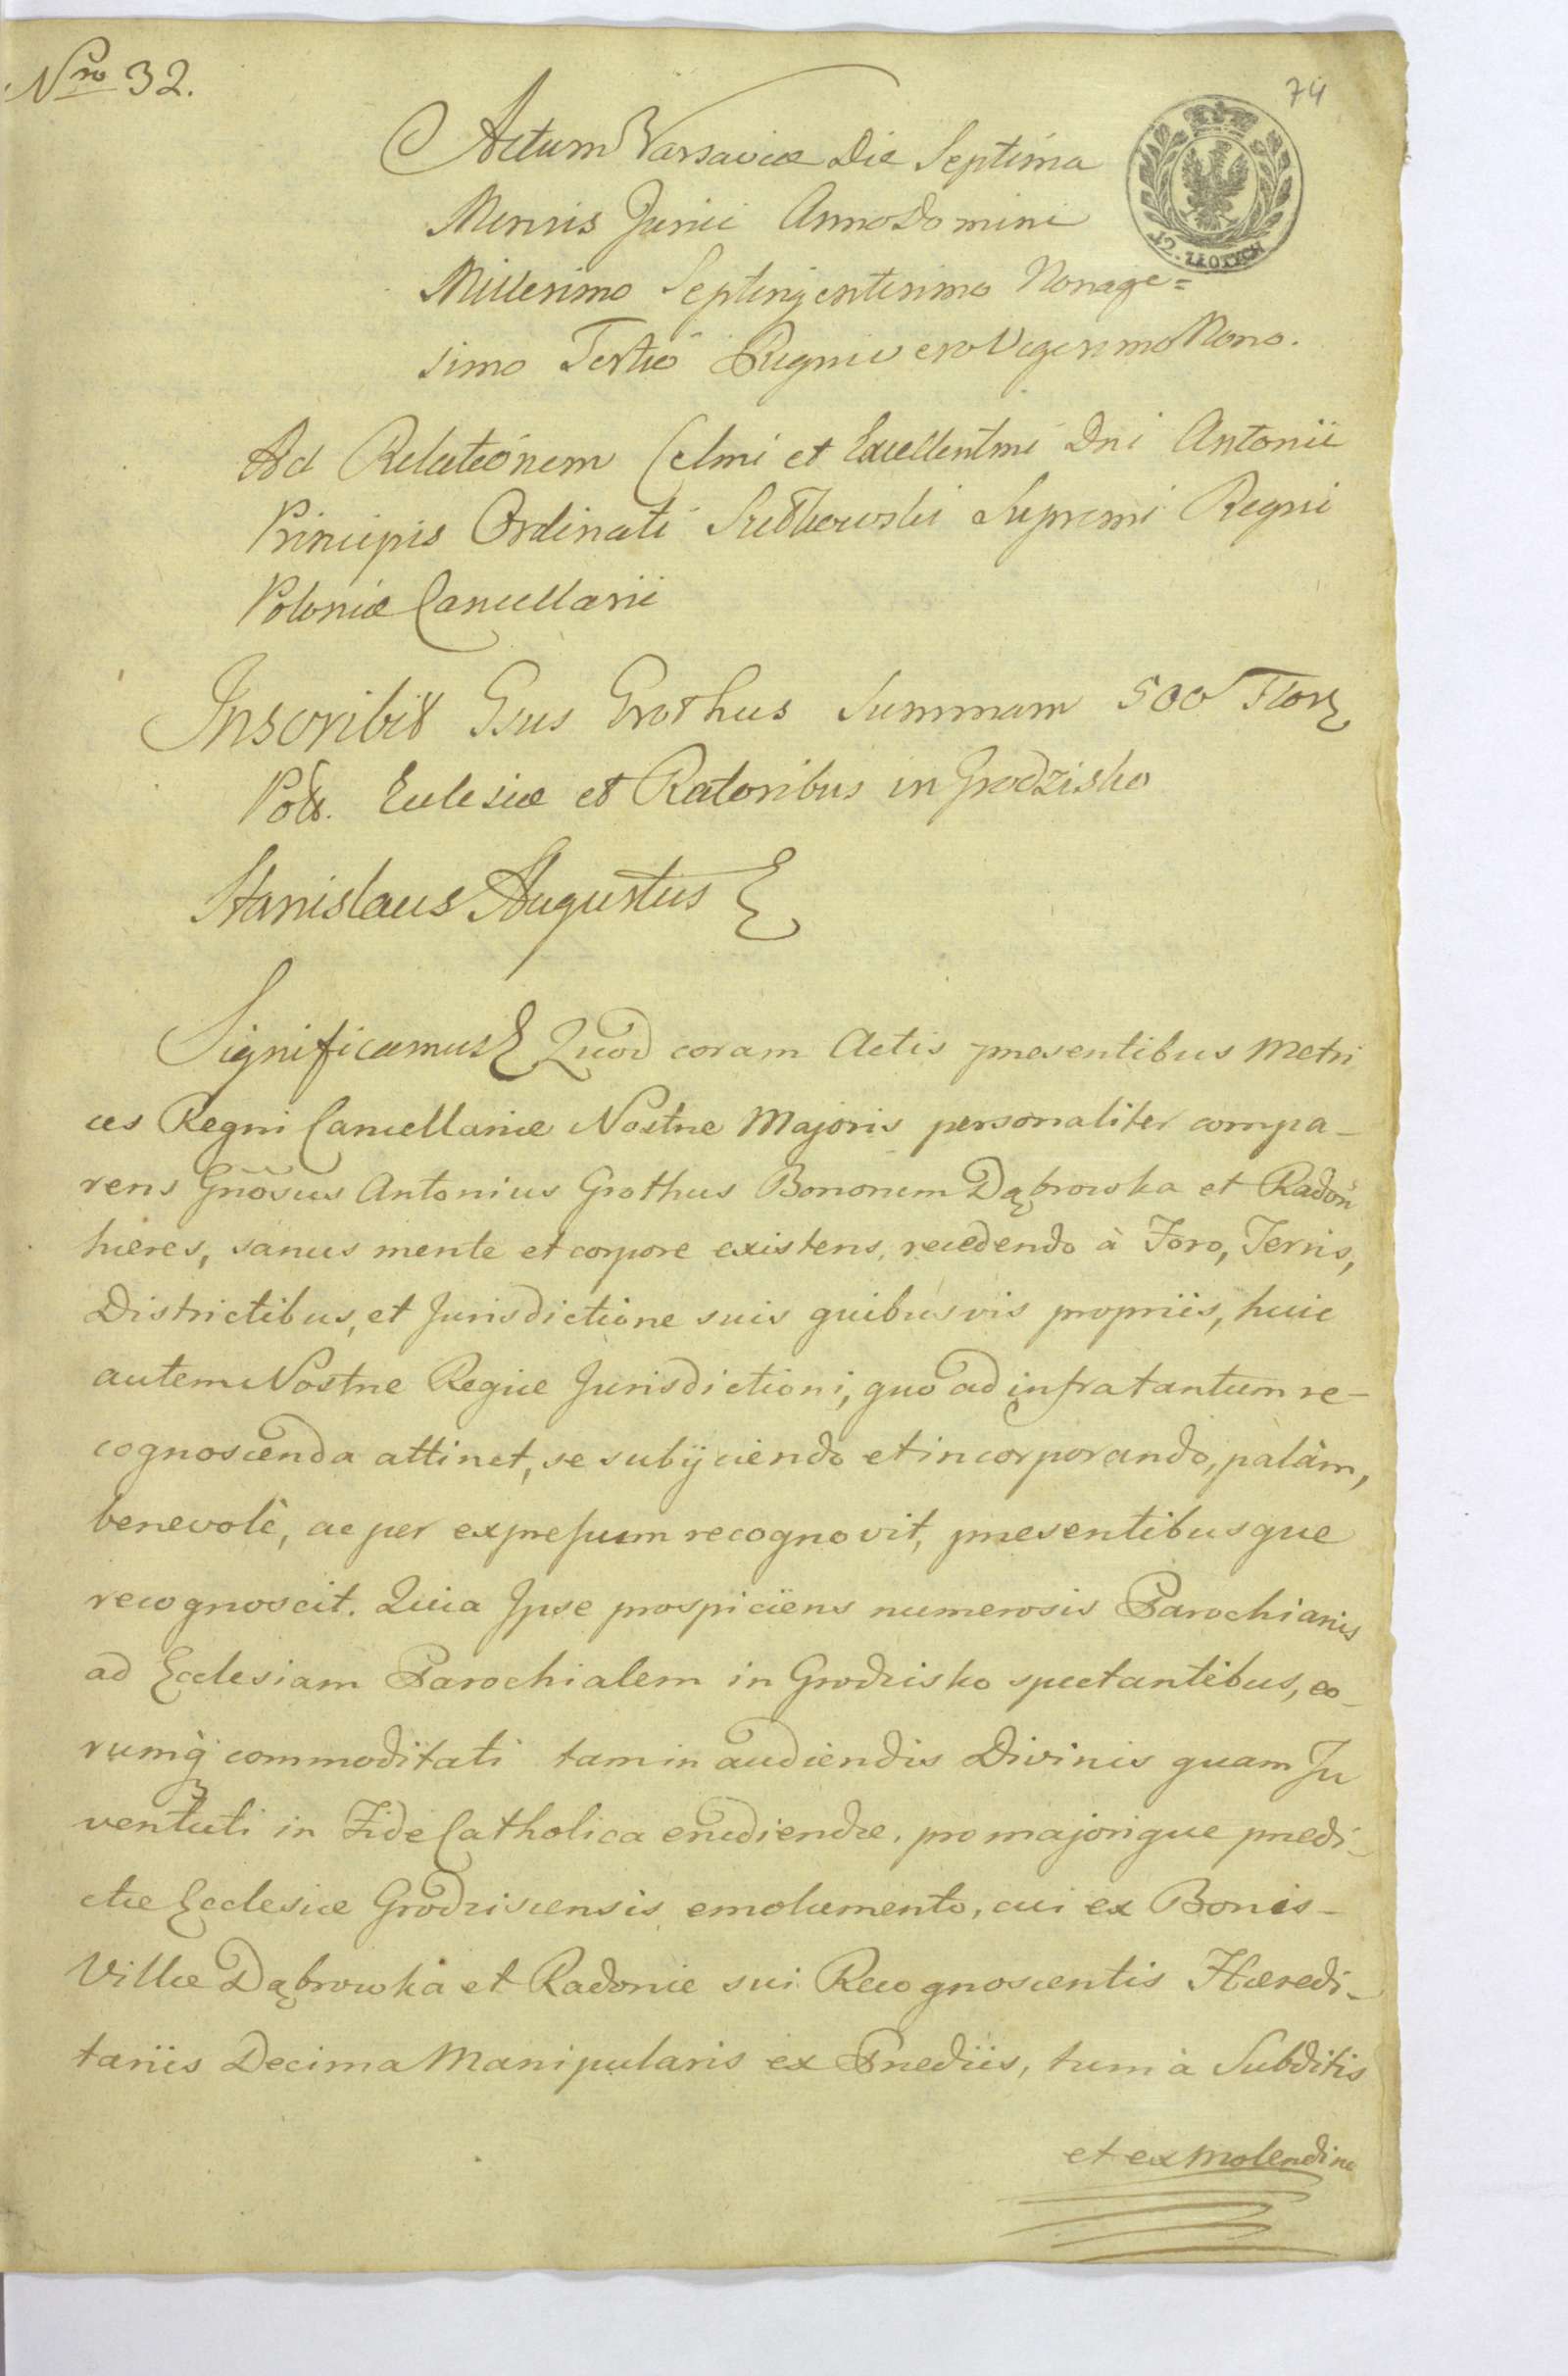 Nro 32.
74
Actum Varsaviæ Die Septima
Mensis Junii Anno Domini
Millesimo Septingentesimo Nonage=
simo Tertio Regni vero Vigesimo Nono.
12. ZŁOTYCH
Ad Relationem Celmi et Excellentmi Dni Antonii
Principis Ordinati Sułkowski Supremi Regni
Poloniæ Cancellarii
Inscribit Gsus Grothus Summam 500 Flor
Pol. Ecclesiæ et Ratoribus in Grodzisko
Stanislaus Augustus
Significamus Quod coram Actis præsentibus Metri
ces Regni Cancellariæ Nostræ Majoris personaliter compa-
rens Gnosus Antonius Grothus Bonorum Dąbrowka et Radoń
hæres, sanus mente et corpore existens, recedendo à Foro, Terris,
Districtibus, et Jurisdictione suis quibusvis propriis, huic
autem Nostræ Regiæ Jurisdictioni, quo ad infra tantum re-
cognoscenda attinet, se subijciendo et incorporando, palàm,
benevolè, ac per expressum recognovit, præsentibusque
recognoscit. Quia Ipse prospiciens numerosis Parochianis
ad Ecclesiam Parochialem in Grodzisko spectantibus, eo-
rumq commoditati tam in audiendis Divinis quam Ju
ventuti in Fide Catholica erudiendæ, pro majorique prædi-
ctæ Ecclesiæ Grodziscensis emolumento, cui ex Bonis-
Villæ Dąbrowka et Radonie sui Recognoscentis Hæredi-
tariis Decima Manipularis ex Prædiis, tum à Subditis
et ex Molendino